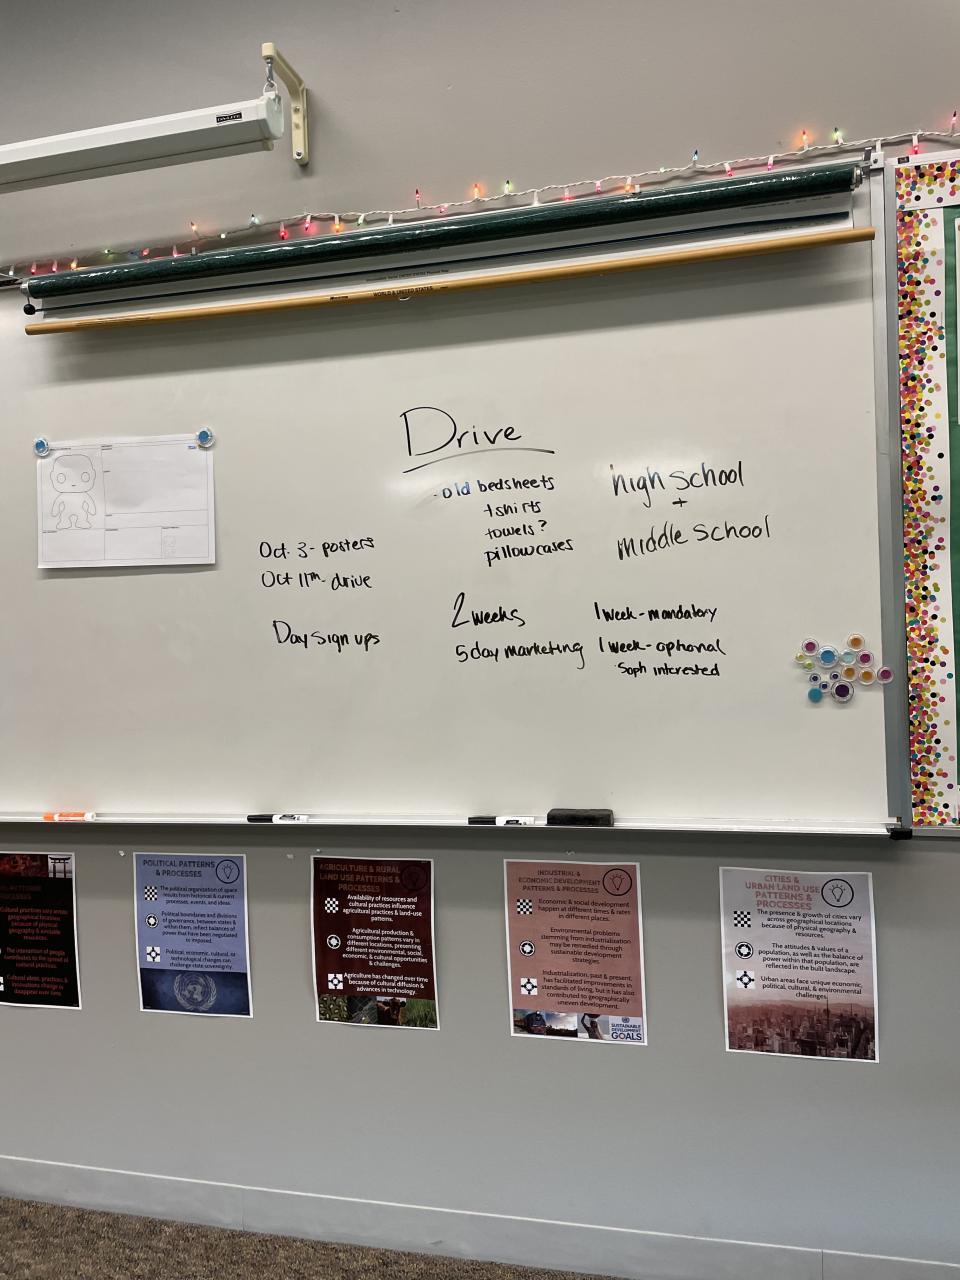 DA-LITE
WORLD & UNITED STATES
Drive
- old bedsheets
tshirts
towels?
pillowcases
high school
+
middle school
Oct. 3 - posters
Oct 11th - drive
Day sign ups
2 weeks
5 day marketing
1 week - mandatory
1 week - optional
Soph interested
Cultural practices vary across
geographical locations
because of physical
geography & available
resources.
The interaction of people
contributes to the spread of
cultural practices.
Cultural ideas, practices, &
innovations change or
disappear over time.
POLITICAL PATTERNS
& PROCESSES
The political organization of space
results from historical & current
processes, events, and ideas.
Political boundaries and divisions
of governance, between states &
within them, reflect balances of
power that have been negotiated
or imposed.
Political, economic, cultural, or
technological changes can
challenge state sovereignty.
AGRICULTURE & RURAL
LAND USE PATTERNS &
PROCESSES
Availability of resources and
cultural practices influence
agricultural practices & land-use
patterns.
Agricultural production &
consumption patterns vary in
different locations, presenting
different environmental, social,
economic, & cultural opportunities
& challenges.
Agriculture has changed over time
because of cultural diffusion &
advances in technology.
INDUSTRIAL &
ECONOMIC DEVELOPMENT
PATTERNS & PROCESSES
Economic & social development
happen at different times & rates
in different places.
Environmental problems
stemming from industrialization
may be remedied through
sustainable development
strategies.
Industrialization, past & present,
has facilitated improvements in
standards of living, but it has also
contributed to geographically
uneven development.
SUSTAINABLE
DEVELOPMENT
GOALS
CITIES &
URBAN LAND USE
PATTERNS &
PROCESSES
The presence & growth of cities vary
across geographical locations
because of physical geography &
resources.
The attitudes & values of a
population, as well as the balance of
power within that population, are
reflected in the built landscape.
Urban areas face unique economic,
political, cultural, & environmental
challenges.